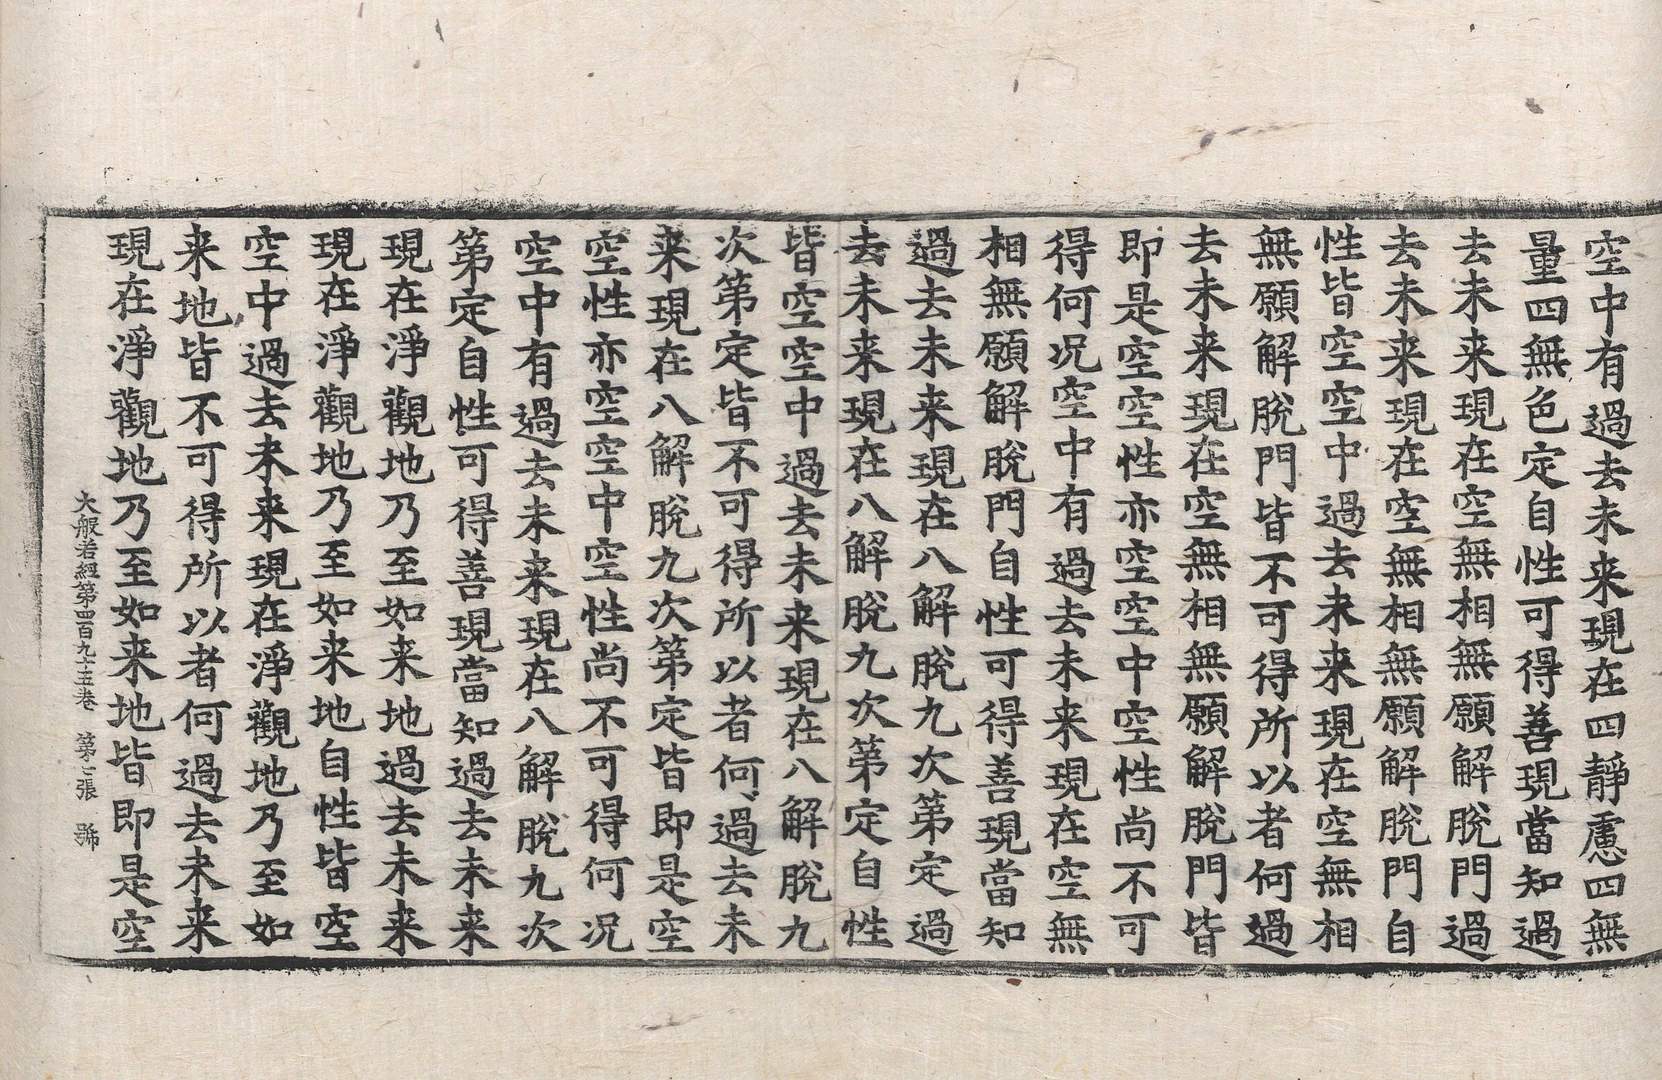 空中有過去未来現在四靜慮四無
量四無色定自性可得善現當知過
去未来現在空無相無願解脫門過
去未来現在空無相無願解脫門自
性皆空空中過去未来現在空無相
無願解脫門皆不可得所以者何過
去未来現在空無相無願解脫門皆
即是空空性亦空空中空性尚不可
得何况空中有過去未来現在空無
相無願解脫門自性可得善現當知
過去未来現在八解脫九次第定過
去未来現在八解脫九次第定自性
皆空空中過去未来現在八解脫九
次第定皆不可得所以者何過去未
来現在八解脫九次第定皆即是空
空性亦空空中空性尚不可得何况
空中有過去未来現在八解脫九次
第定自性可得善現當知過去未来
現在淨觀地乃至如来地過去未来
現在淨觀地乃至如来地自性皆空
空中過去未来現在淨觀地乃至如
来地皆不可得所以者何過去未来
現在淨觀地乃至如来地皆即是空
大般若經第四百九十五卷 第七張 號